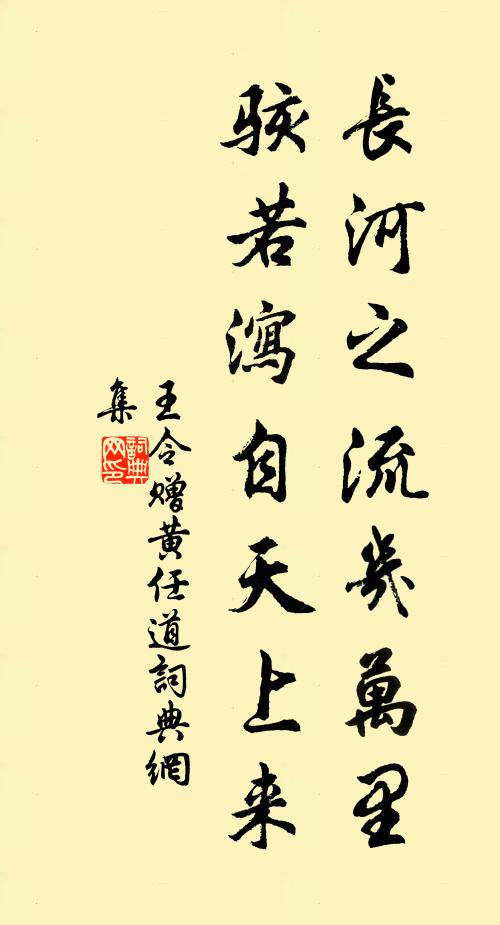 長河之流幾萬里
駭若瀉自天上来
王令贈黄任道詞典網
集
詞典
网印